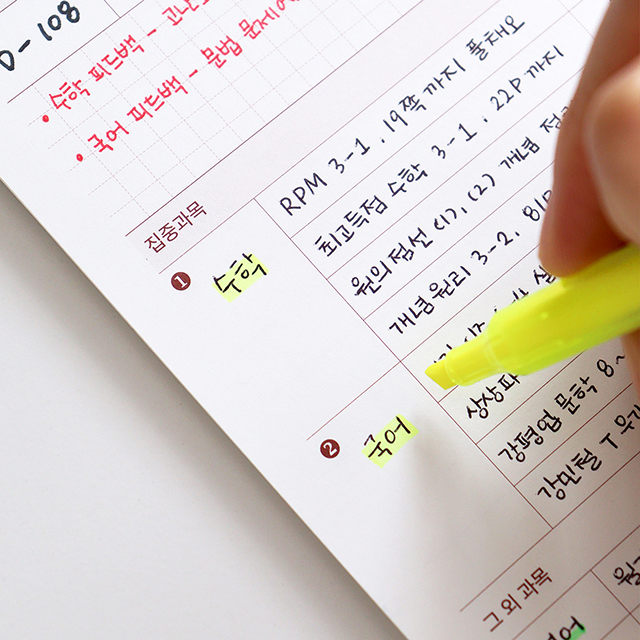 D-108
• 수학 피드백 - 고난도
• 국어 피드백 - 문법 문제
집중과목
1 수학
RPM 3-1, 19쪽까지 풀채오
최고득점 수학 3-1, 22P 까지
원의 접선 (1), (2) 개념
개념원리 3-2,
2 국어
상상파
강평업 문학 8~
강민철 T
그 외 과목